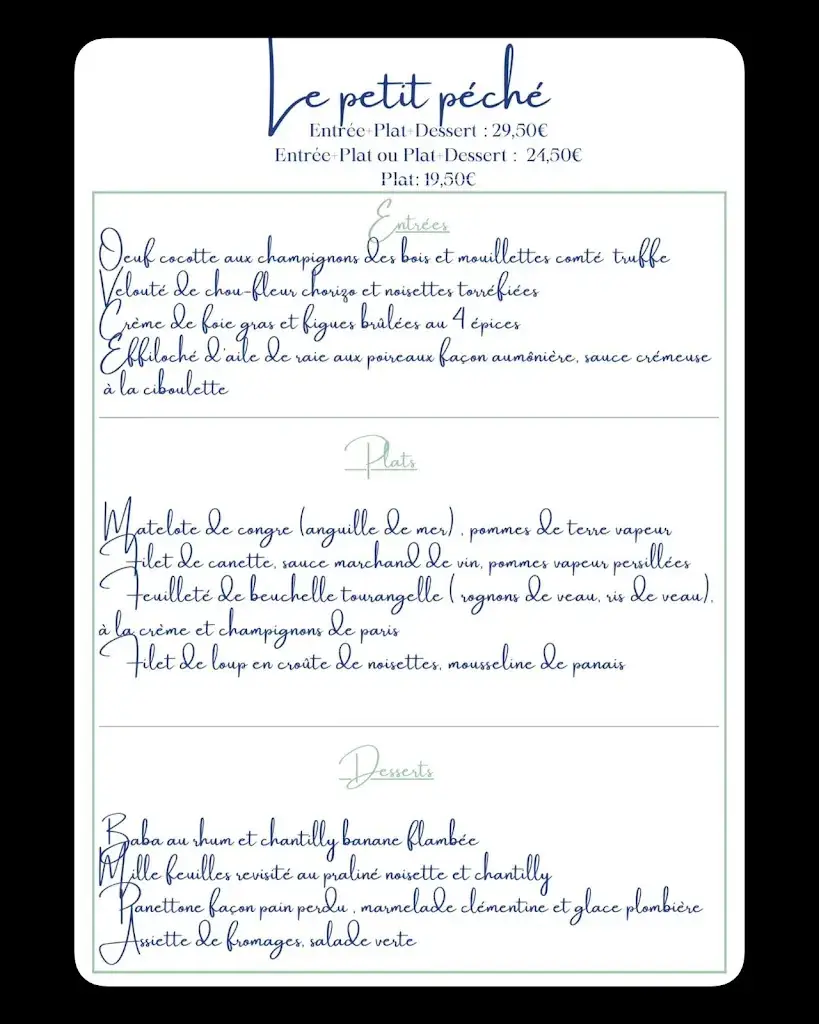 Le petit péché
Entrée+Plat+Dessert : 29,50€
Entrée+Plat ou Plat+Dessert : 24,50€
Plat: 19,50€
Entrées
Oeuf cocotte aux champignons des bois et mouillettes comté truffe
Velouté de chou-fleur chorizo et noisettes torréfiées
Crème de foie gras et figues brûlées au 4 épices
Effiloché d'aile de raie aux poireaux façon aumônière, sauce crémeuse
à la ciboulette
Plats
Matelote de congre (anguille de mer) , pommes de terre vapeur
Filet de canette, sauce marchand de vin, pommes vapeur persillées
Feuilleté de beuchelle tourangelle ( rognons de veau, ris de veau),
à la crème et champignons de paris
Filet de loup en croûte de noisettes, mousseline de panais
Desserts
Baba au rhum et chantilly banane flambée
Mille feuilles revisité au praliné noisette et chantilly
Panettone façon pain perdu , marmelade clémentine et glace plombière
Assiette de fromages, salade verte